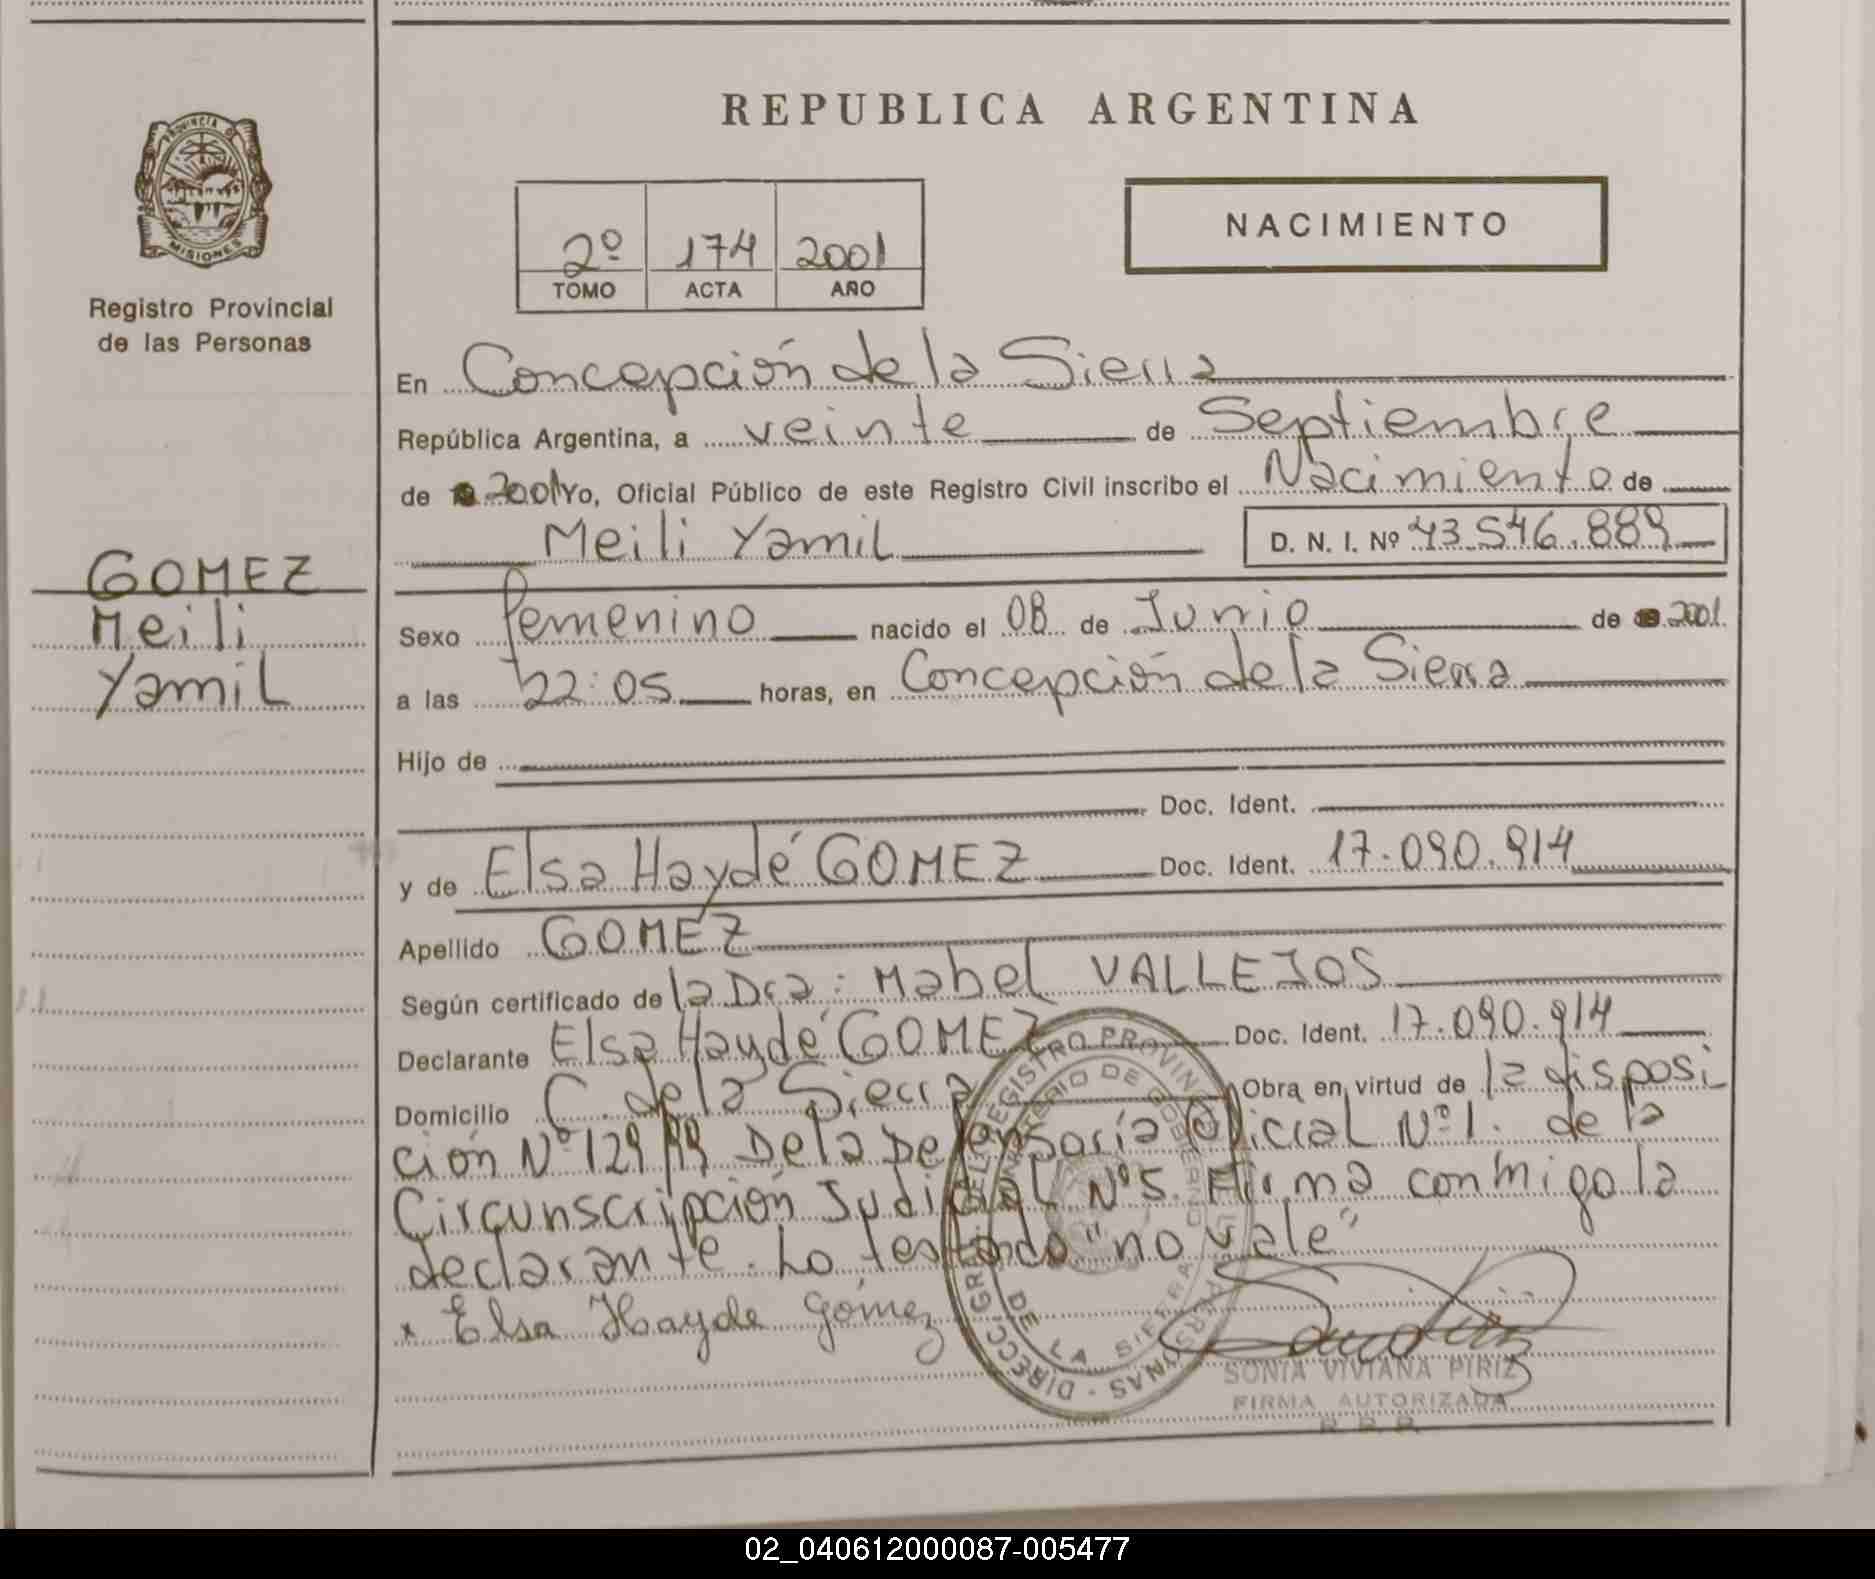 REPUBLICA ARGENTINA
PROVINCIA D
MISIONES
Registro Provincial
de las Personas
2º 174 2001
TOMO ACTA AÑO
NACIMIENTO
GOMEZ
Meili
Yamil
En Concepción de la Sierra
República Argentina, a veinte de Septiembre
de 2001 Yo, Oficial Público de este Registro Civil inscribo el Nacimiento de
Meili Yamil D. N. I. Nº 43.546.889
Sexo femenino nacido el 08 de Junio de 2001.
a las 22:05 horas, en Concepción de la Sierra
Hijo de
Doc. Ident.
y de Elsa Haydé GOMEZ Doc. Ident. 17.090.914
Apellido GOMEZ
Según certificado de la Dra: Mabel VALLEJOS
Declarante Elsa Haydé GOMEZ Doc. Ident. 17.090.914
Domicilio C. de la Sierra Obra en virtud de la disposi
ción Nº 129/99 De la Defensoría Oficial Nº 1. de la
Circunscripción Judicial Nº 5. Firma conmigo la
declarante. Lo testado "no vale"
x Elsa Hayde Gómez
DIRECC. GRAL. DEL REGISTRO PROVINC. PERSONAS
MINISTERIO DE GOBIERNO
DE LA SIERRA
SONIA VIVIANA PIRIZ
FIRMA AUTORIZADA
R. P. P.
02_040612000087-005477